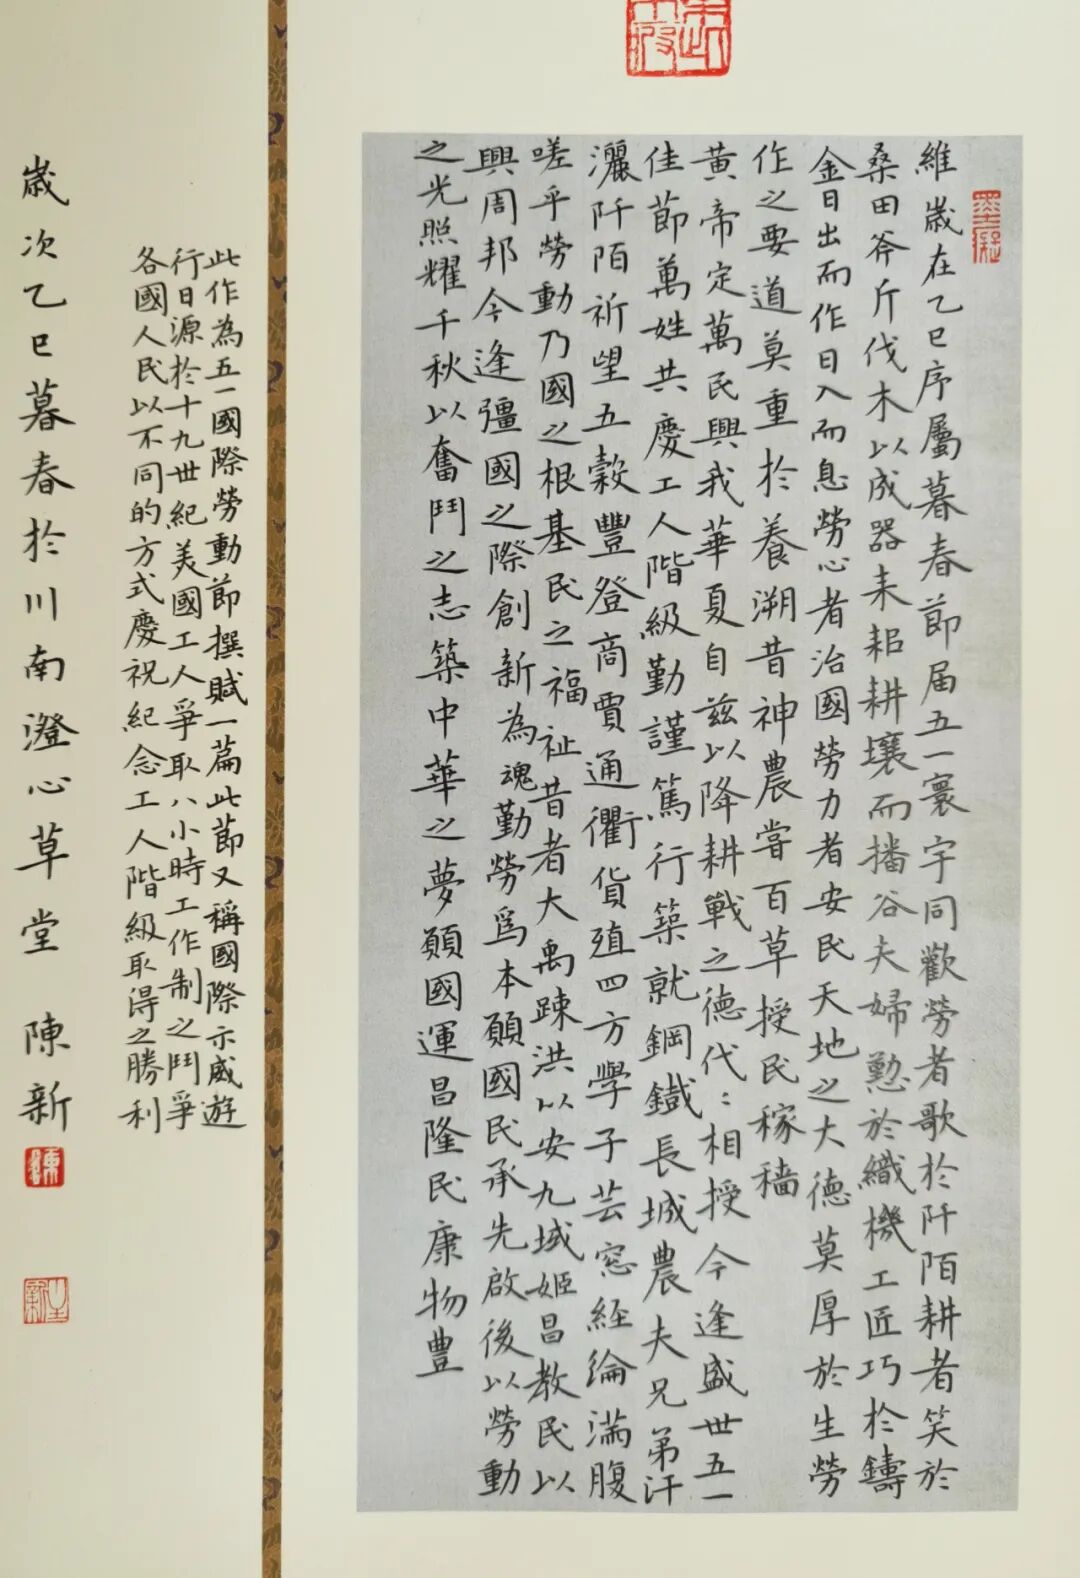 墨凝
維歲在乙巳序屬暮春節届五一寰宇同歡勞者歌於阡陌耕者笑於
桑田斧斤伐木以成器耒耜耕壤而播谷夫婦懃於織機工匠巧於鑄
金日出而作日入而息勞心者治國勞力者安民天地之大德莫厚於生勞
作之要道莫重於養溯昔神農嘗百草授民稼穡
黄帝定萬民興我華夏自兹以降耕戰之德代〻相授今逢盛世五一
佳節萬姓共慶工人階級勤謹篤行築就鋼鐵長城農夫兄弟汗
灑阡陌祈望五穀豐登商賈通衢貨殖四方學子芸窓経綸満腹
嗟乎勞動乃國之根基民之福祉昔者大禹踈洪以安九域姬昌教民以
興周邦今逢彊國之際創新為魂勤勞爲本願國民承先啟後以勞動
之光照耀千秋以奮鬥之志築中華之夢願國運昌隆民康物豊
此作為五一國際勞動節撰賦一篇此節又稱國際示威遊
行日源於十九世紀美國工人爭取八小時工作制之鬥爭
各國人民以不同的方式慶祝紀念工人階級取得之勝利
歲次乙巳暮春於川南澄心草堂 陳新